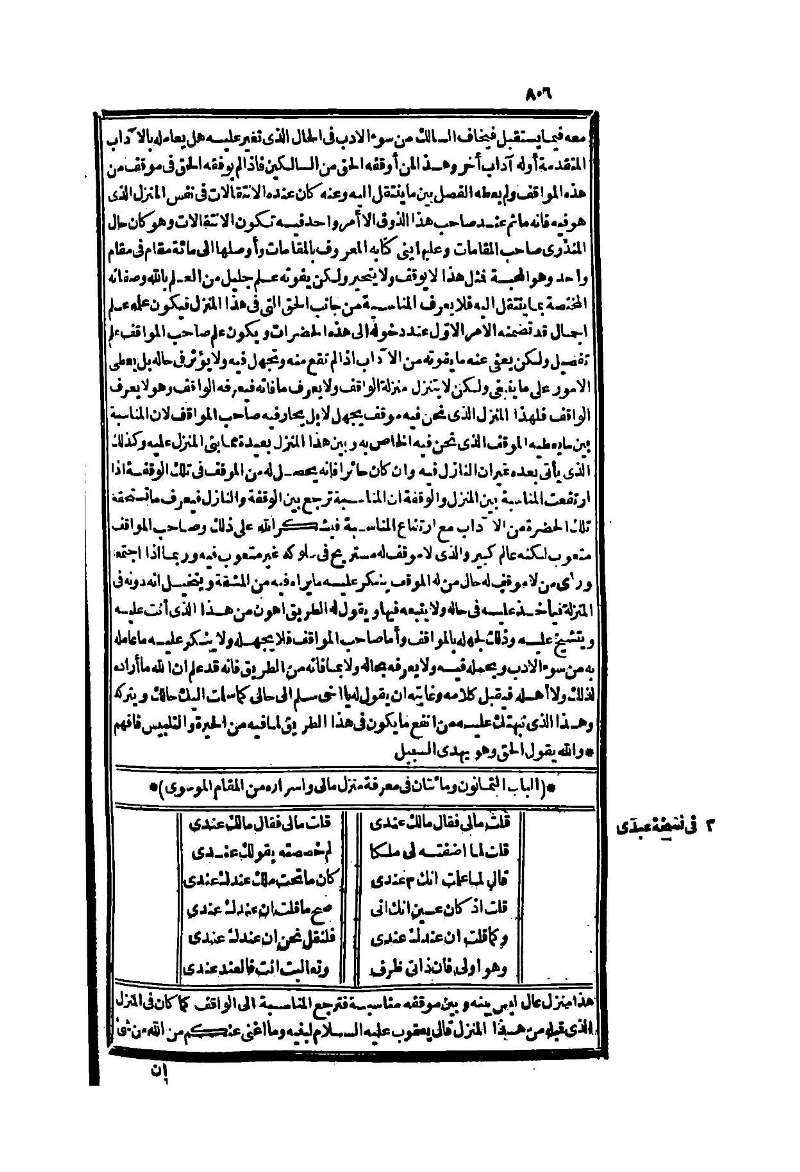 ٨٠٦
معه فيما يستقبل فيخاف السالك من سوء الادب فى الحال الذى تغير عليه هل يعامله بالآداب
المتقدمة أوله آداب أخر وهذا لمن أوقفه الحق من السالكين فاذا لم يوقفه الحق فى موقف من
هذه المواقف ولم يعطه الفصل بين ما ينتقل اليه وعنه كان عنده الانتقالات فى نفس المنزل الذى
هو فيه فانه ما ثم عند صاحب هذا الذوق الا أمر واحد فيه تكون الانتقالات وهو كان حال
المنذرى صاحب المقامات وعليها بنى كتابه المعروف بالمقامات وأوصلها الى مائة مقام فى مقام
واحد وهو المحبة فمثل هذا لا يوقف ولا يتحير ولكن يفوته علم جليل من العلم بالله وصفاته
المختصة بما ينتقل اليه فلا يعرف المناسبة من جانب الحق التى فى هذا المنزل فيكون علمه علم
اجمال قد تضمنه الامر الاول عند دخوله الى هذه الحضرات ويكون علم صاحب المواقف علم
تفصيل ولكن يعفى عنه ما يفوته من الآداب اذا لم تقع منه وتجهل فيه ولا يؤثر فى حاله بل يعطى
الامور على ما ينبغى ولكن لا يتنزل منزلة الواقف ولا يعرف ما فاته فيعرفه الواقف وهو لا يعرف
الواقف فلهذا المنزل الذى نحن فيه موقف يجهل لا بل يحار فيه صاحب المواقف لان المناسبة
بين ما يعطيه الموقف الذى نحن فيه الخاص به وبين هذا المنزل بعيدة مما بنى المنزل عليه وكذلك
الذى يأتى بعده غير ان النازل فيه وان كان حائرا فانه يحصل له من الموقف فى تلك الوقفة اذا
ارتفعت المناسبة بين المنزل والوقفة ان المناسبة ترجع بين الوقفة والنازل فيعرف ما تستحقه
تلك الحضرة من الآداب مع ارتفاع المناسبة فيشكر الله على ذلك وصاحب المواقف
متعوب لكنه عالم كبير والذى لا موقف له مستريح فى سلوكه غير متعوب فيه وربما اذا اجتمعا
ورأى من لا موقف له حال من له الموقف ينكر عليه ما يراه فيه من المشقة ويتخيل انه دونه فى
المنزلة فيأخذ عليه فى حاله ولا يتبعه فيها ويقول له الطريق اهون من هذا الذى أنت عليه
ويتشيخ عليه وذلك لجهله بالمواقف وأما صاحب المواقف فلا يجهله ولا ينكر عليه ما عامله
به من سوء الادب ويحمله فيه ولا يعرفه بحاله ولا بما فاته من الطريق فانه قد علم ان الله ما أراده
لذلك ولا أهله فيقبل كلامه وغايته ان يقول له يا اخى سلم الى حالى كما سلمت اليك حالك ويتركه
وهذا الذى نبهتك عليه من انفع ما يكون فى هذا الطريق لما فيه من الحيرة والتلبيس فافهم
*والله يقول الحق وهو يهدى السبيل
*(الباب الثمانون ومائتان فى معرفة منزل مالى واسراره من المقام الموسوى)*
قلت مالى فقال مالك عندى قلت مالى فقال مالك عندى
قلت لما اضفته لى ملكا لم خصصته بقولك عندى
قال لما علمت انك عندى كان ما تحت ملك عندك عندى
قلت اذ كان عين انك انى صح ما قلت ان عندك عندى
وكما قلت ان عندك عندى فلنقل نحن ان عندك عندى
وهو اولى فان ذاتى ظرف وتعاليت انت فالعند عندى
٣ فى نسخة عبدى
هذا منزل عال ليس بينه وبين موقفه مناسبة فترجع المناسبة الى الواقف كما كان فى المنزل
الذى قبله من هذا المنزل قال يعقوب عليه السلام لبنيه وما اغنى عنكم من الله من شئ
ان